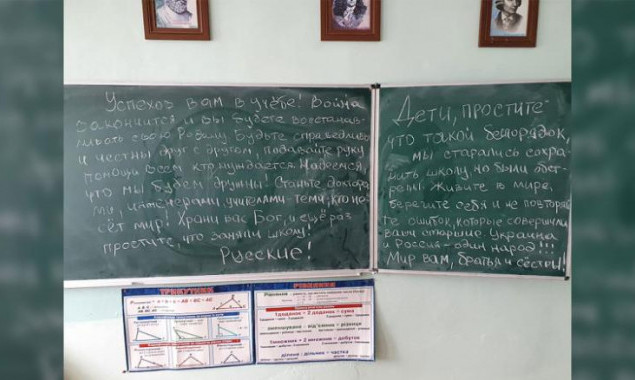 Успехов вам в учёбе! Война
закончится и вы будете восстанав-
ливать свою Родину. Будьте справедливы
и честны друг с другом, подавайте руку
помощи всем, кто нуждается. Надеемся,
что мы будем дружны! Станьте доктора-
ми, инженерами, учителями - теми, кто не-
сёт мир! Храни вас Бог, и ещё раз
простите, что заняли школу!
Русские!
Дети, простите
что такой беспорядок,
мы старались сохра-
нить школу, но были обст-
релы. Живите в мире,
берегите себя и не повторяй-
те ошибок, которые совершили
ваши старшие. Украина
и Россия - один народ!!!
Мир вам, братья и сёстры!
ТРИКУТНИК
РІВНЯННЯ
1 доданок + 2 доданок = сума
зменшуване - від'ємник = різниця
1 множник × 2 множник = добуток
ділене : дільник = частка